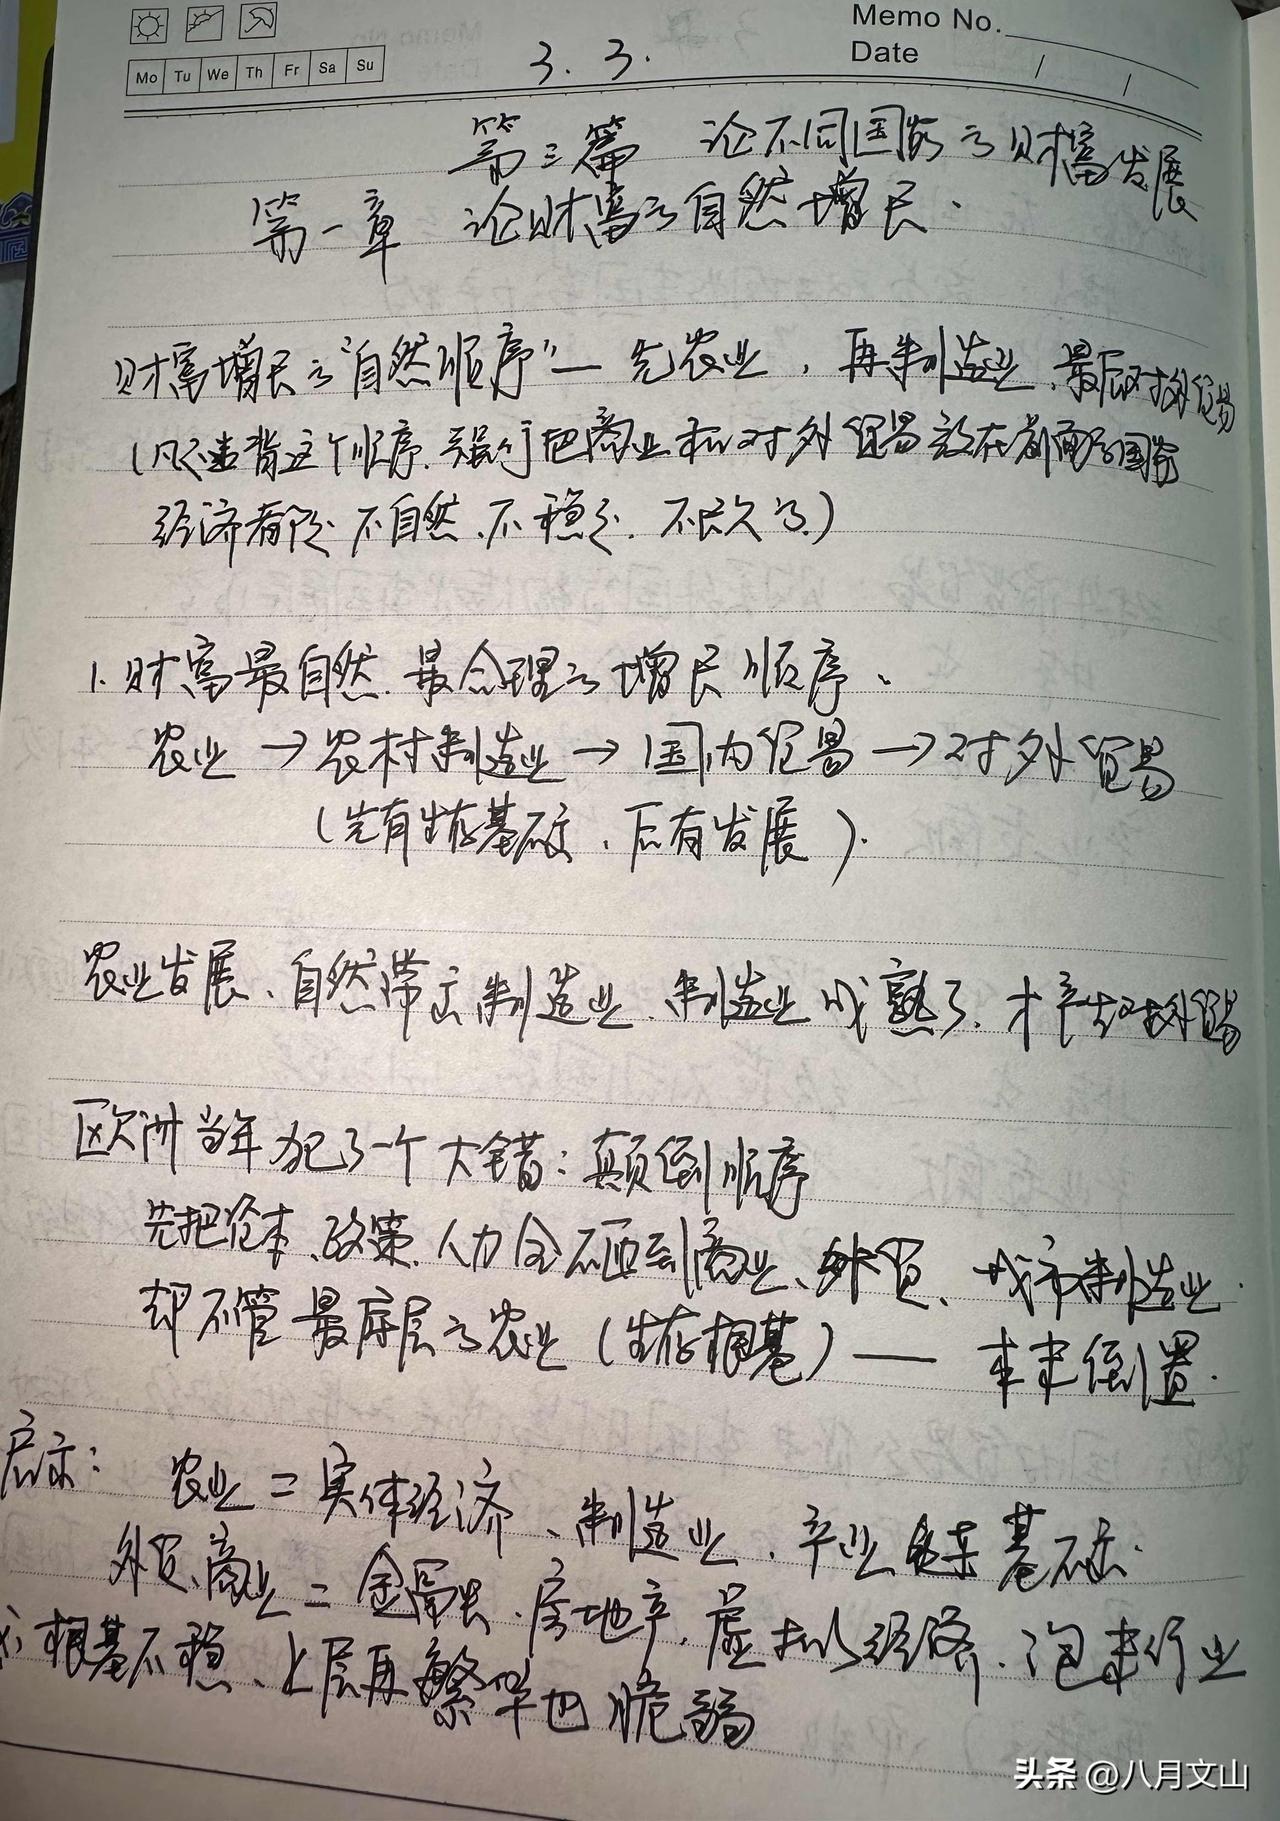 Memo No.
Mo Tu We Th Fr Sa Su
Date / /
3.3.
第三篇 论不同国家之财富发展
第一章 论财富之自然增长.
财富增长之“自然顺序”— 先农业，再制造业、最后对外贸易
(凡是违背这个顺序、强行把商业和对外贸易放在前面的国家
经济都是不自然、不稳定、不长久的)
1. 财富最自然、最合理之增长顺序、
农业→农村制造业→国内贸易→对外贸易
(先有生存基础、后有发展).
农业发展、自然带动制造业、制造业成熟了、才产生对外贸易
欧洲当年犯了一个大错：颠倒顺序
先把资本、政策、人力全砸到商业、外贸、城市制造业.
却不管最底层之农业(生存根基)—— 本末倒置.
启示： 农业＝实体经济、制造业、产业链条基础.
外贸、商业＝金融、房地产、虚拟经济、泡沫行业
根基不稳、上层再繁华也脆弱
头条 @八月文山